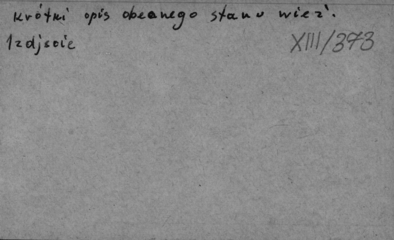 krótki opis obecnego stanu wież.
1 zdjęcie XIII/373